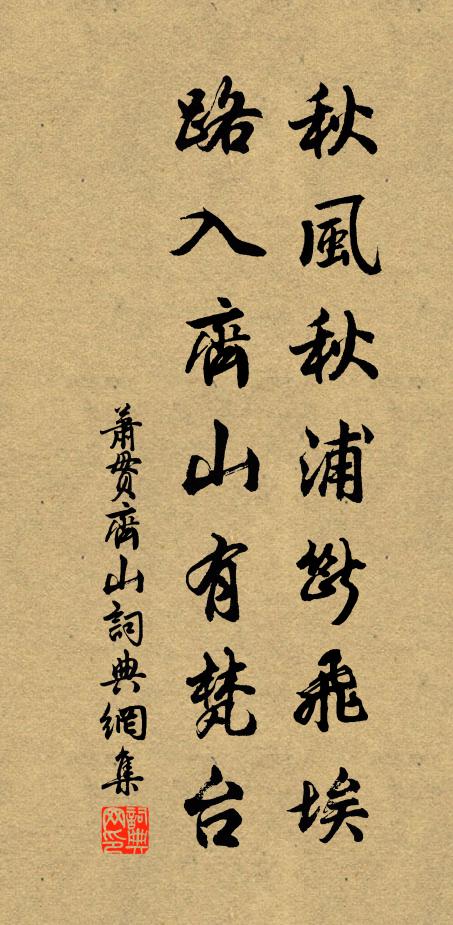 秋風秋浦斷飛埃
路入齊山有梵台
蕭貫齊山詞典網集
詞典网印